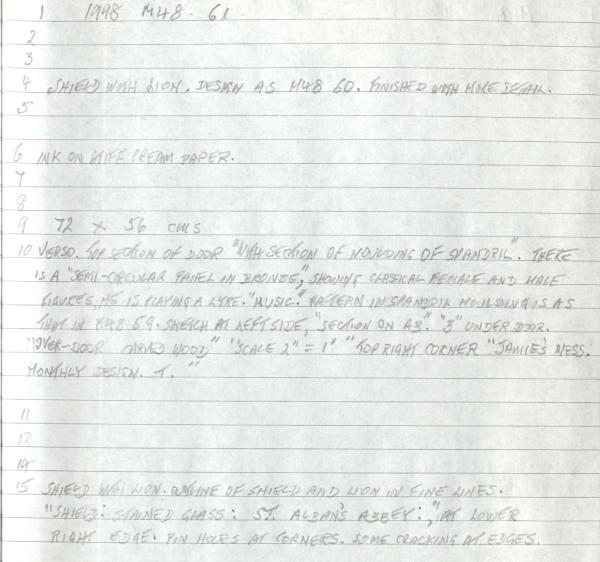 1 1998 M48. 61
2
3
4 SHIELD WITH LION. DESIGN AS M48 60. FINISHED WITH MORE DETAIL.
5
6 INK ON STIFF CREAM PAPER.
7
8
9 72 x 56 cms
10 VERSO. TOP SECTION OF DOOR "WITH SECTION OF MOULDING OF SPANDRIL". THERE
IS A "SEMI-CIRCULAR PANEL IN BRONZE", SHOWING CLASSICAL FEMALE AND MALE
FIGURES, HE IS PLAYING A LYRE. "MUSIC." PATTERN IN SPANDRIL MOULDING IS AS
THAT IN M48.59. SKETCH AT LEFT SIDE, "SECTION ON AB". "3" UNDER DOOR.
"OVER-DOOR CARVED WOOD" "SCALE 2" = 1' " TOP RIGHT CORNER "JAMIE'S NESS.
MONTHLY DESIGN. T. "
11
12
14
15 SHIELD WITH LION. OUTLINE OF SHIELD AND LION IN FINE LINES.
"SHIELD: STAINED GLASS: ST. ALBAN'S ABBEY:," AT LOWER
RIGHT EDGE. PIN HOLES AT CORNERS. SOME CRACKING AT EDGES.